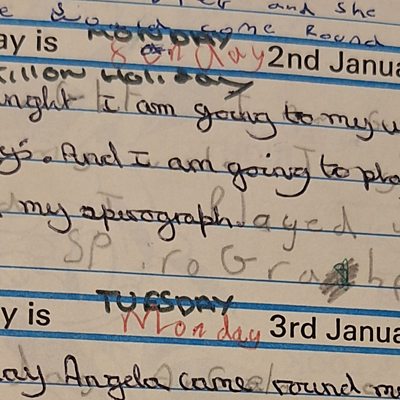 and she
come Round
ay is MONDAY Sonday 2nd Janua
Holiday
inght I am going to my u
y's. And I am going to pla
my sperograph. layed
SP iroGra
y is TUESDAY Monday 3rd Janua
ay Angela came round m